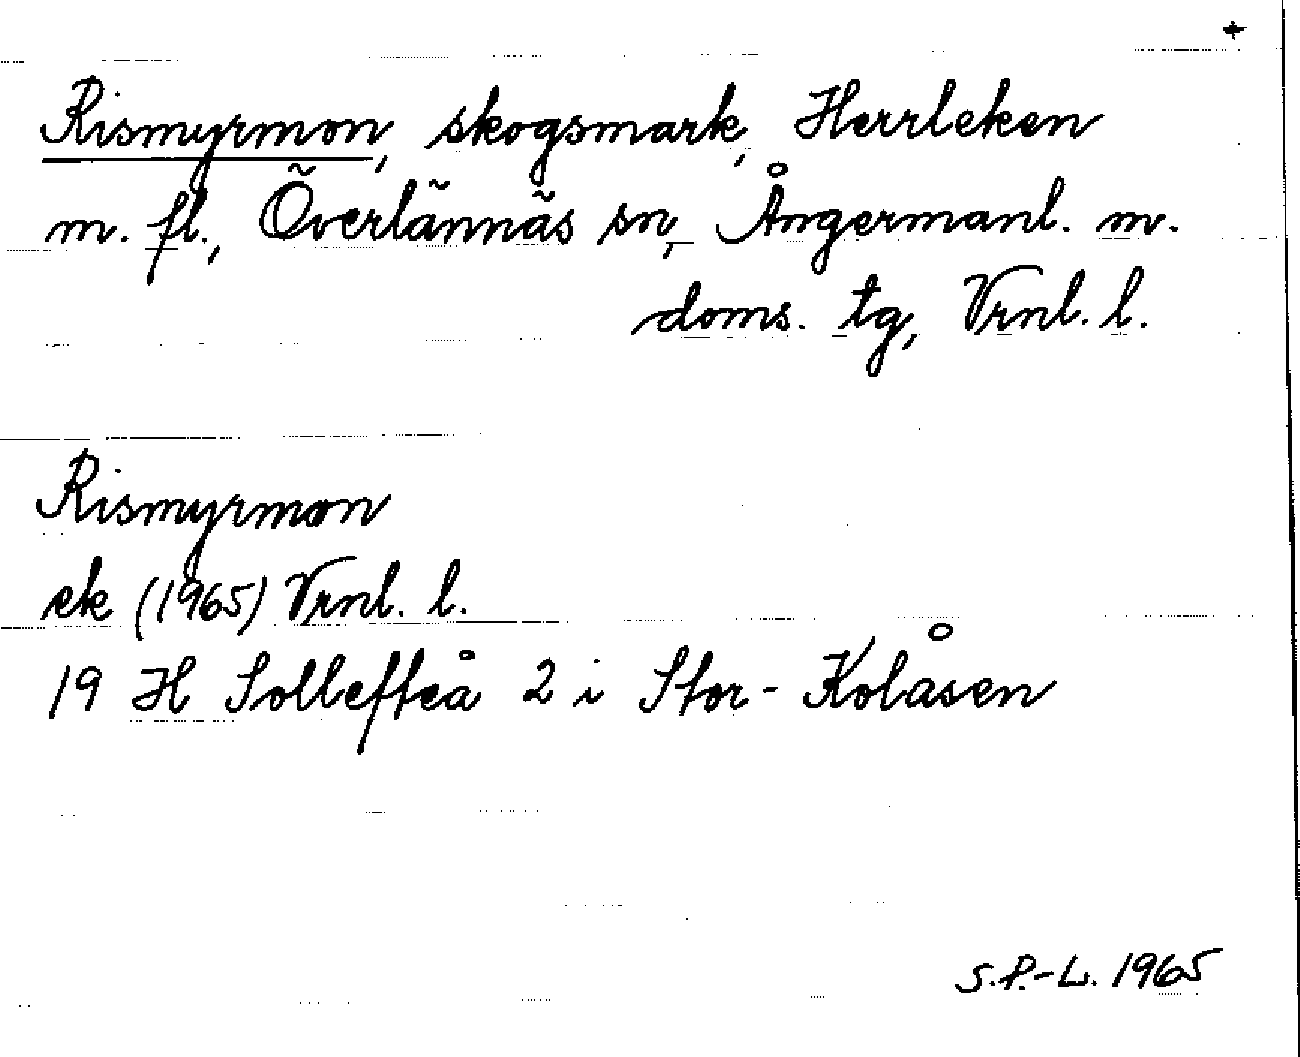 +
Rismyrmon, skogsmark, Herrleken
m. fl., Överlännäs sn, Ångermanl. m.
doms. tg, Vrnl. l.
Rismyrmon
ek (1965) Vrnl. l.
19 H Sollefteå 2 i Stor-Kolåsen
S.P.-L. 1965